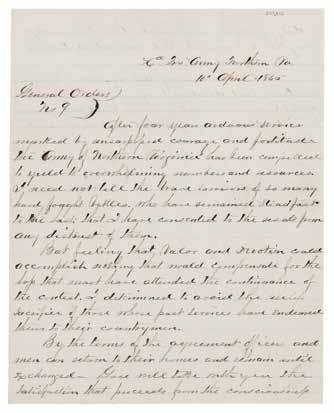 Hd Qrs Army Northern Va
10th April 1865
General Orders
No 9
After four years arduous service
marked by unsurpassed courage and fortitude
the Army of Northern Virginia has been compelled
to yield to overwhelming numbers and resources.
I need not tell the brave survivors of so many
hard fought battles, who have remained steadfast
to the last, that I have consented to the result from
any distrust of them.
But feeling that valor and devotion could
accomplish nothing that would compensate for the
loss that must have attended the continuance
of the contest, I determined to avoid the useless
sacrifice of those whose past services have endeared
them to their countrymen.
By the terms of the agreement officers and
men can return to their homes and remain until
exchanged. You will take with you the
satisfaction that proceeds from the consciousness